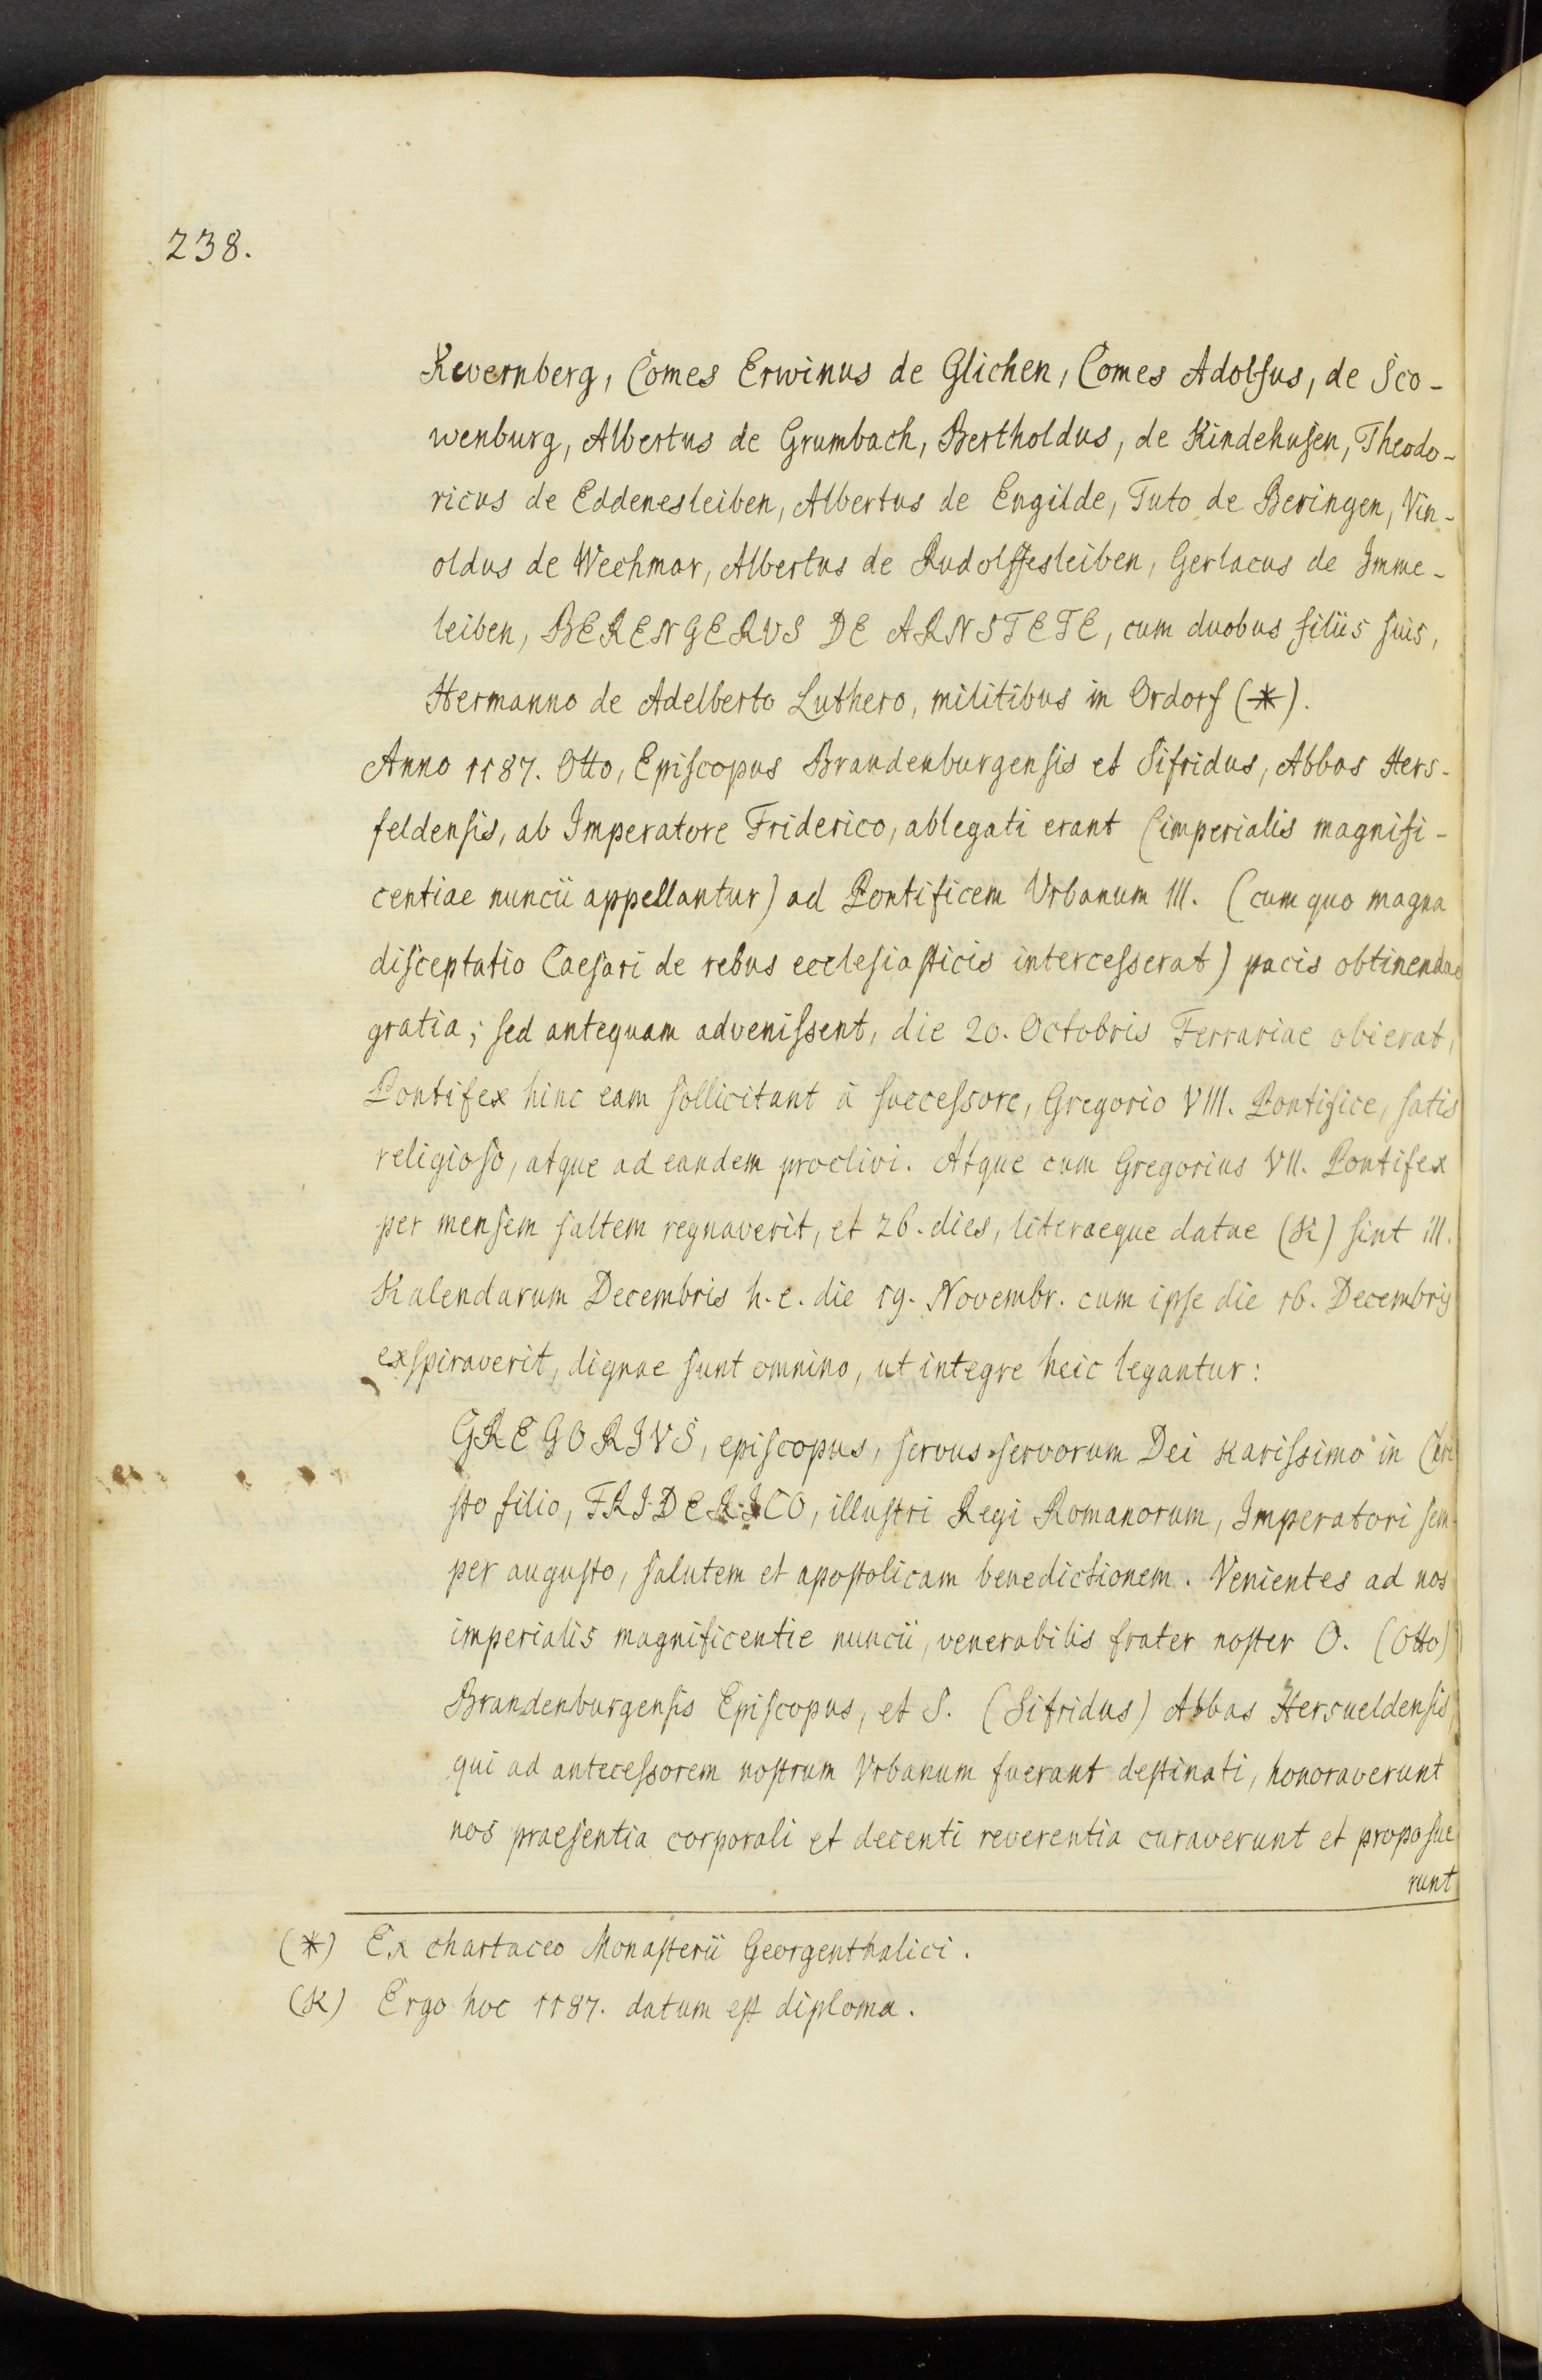 238.
Kevernberg, Comes Erwinus de Glichen, Comes Adolfus, de Sco-
wenburg, Albertus de Grumbach, Bertholdus, de Kindehusen, Theodo-
ricus de Eddenesleiben, Albertus de Engilde, Tuto de Beringen, Vin-
oldus de Wechmar, Albertus de Rudolffesleiben, Gerlacus de Imme-
leiben, BERENGERVS DE ARNSTETE, cum duobus filiis suis,
Hermanno de Adelberto Luthero, militibus in Ordorf (*).
Anno 1187. Otto, Episcopus Brandenburgensis et Sifridus, Abbas Hers-
feldensis, ab Imperatore Friderico, ablegati erant (imperialis magnifi-
centiae nuncii appellantur) ad Pontificem Vrbanum III. (cum quo magna
disceptatio Caesari de rebus ecclesiasticis intercesserat) pacis obtinendae
gratia; sed antequam advenissent, die 20. Octobris Ferrariae obierat,
Pontifex hinc eam sollicitant à successore, Gregorio VIII. Pontifice, satis
religioso, atque ad eandem proclivi. Atque cum Gregorius VII. Pontifex
per mensem saltem regnaverit, et 26. dies, literaeque datae (K) sint III.
Kalendarum Decembris h. e. die 19. Novembr. cum ipse die 16. Decembris
exspiraverit, dignae sunt omnino, ut integre heic legantur:
GREGORIVS, episcopus, servus servorum Dei karissimo in Chri
sto filio, FRIDERICO, illustri Regi Romanorum, Imperatori sem-
per augusto, salutem et apostolicam benedictionem. Venientes ad nos
imperialis magnificentie nuncii, venerabilis frater noster O. (Otto)
Brandenburgensis Episcopus, et S. (Sifridus) Abbas Hersueldensis,
qui ad antecessorem nostrum Vrbanum fuerant destinati, honoraverunt
nos praesentia corporali et decenti reverentia curaverunt et proposue
runt
(*) Ex chartaceo Monasterii Georgenthalici.
(K) Ergo hoc 1187. datum est diploma.